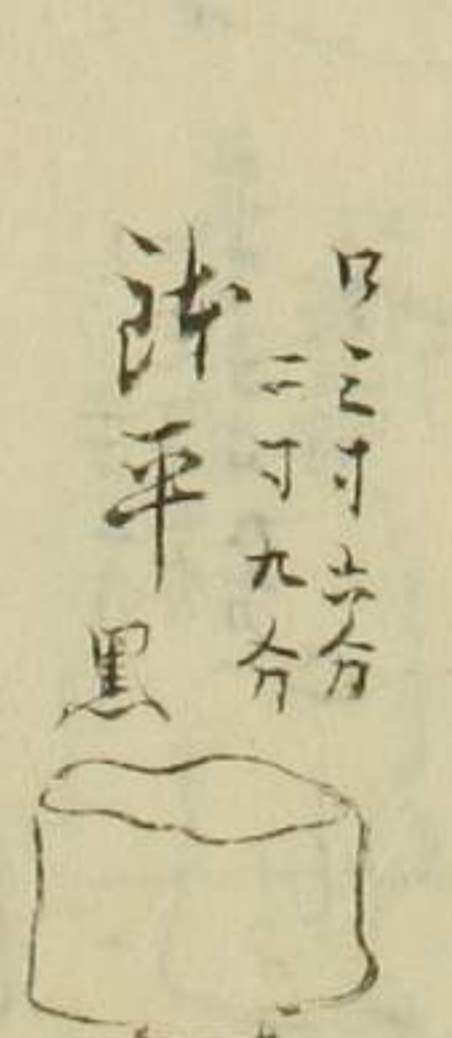 口三寸六分
二寸九分
鉢平
黒